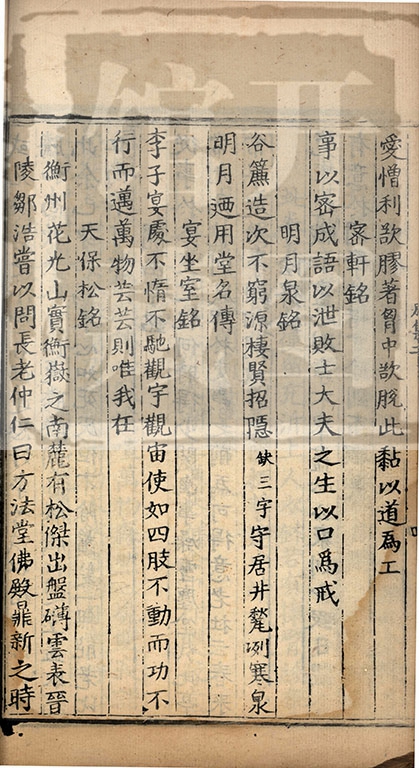 愛憎利欲膠著胷中欲脫此黏以道爲工
密軒銘
事以密成語以泄敗士大夫之生以口爲戒
明月泉銘
谷簾造次不窮源棲賢招隱缺三字守居井甃冽寒泉
明月迺用堂名傳
宴坐室銘
李子宴處不惰不馳觀宇觀宙使如四肢不動而功不
行而邁萬物芸芸則唯我在
天保松銘
衡州花光山實衡嶽之南麓有松傑出盤礴雲表晉
陵鄒浩嘗以問長老仲仁曰方法堂佛殿鼎新之時